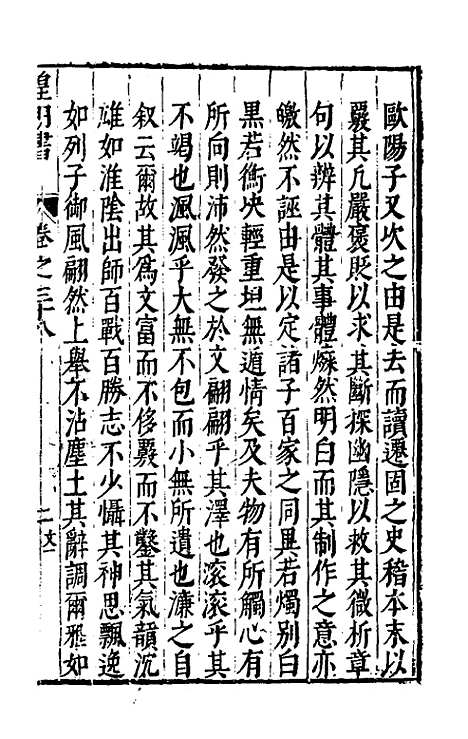 歐陽子又次之由是去而讀遷固之史稽本末以
覈其凡嚴褒貶以求其斷探幽隱以救其微析章
句以辨其體其事體燦然明白而其制作之意亦
皦然不誣由是以定諸子百家之同異若燭別白
黑若衡決輕重坦無遁情矣及夫物有所觸心有
所向則沛然發之於文翩翩乎其澤也滾滾乎其
不竭也渢渢乎大無不包而小無所遺也濂之自
叙云爾故其爲文富而不侈覈而不鑿其氣韻沉
雄如淮陰出師百戰百勝志不少懾其神思飄逸
如列子御風翩然上舉不沾塵土其辭調爾雅如
皇明書 卷之三十八 二